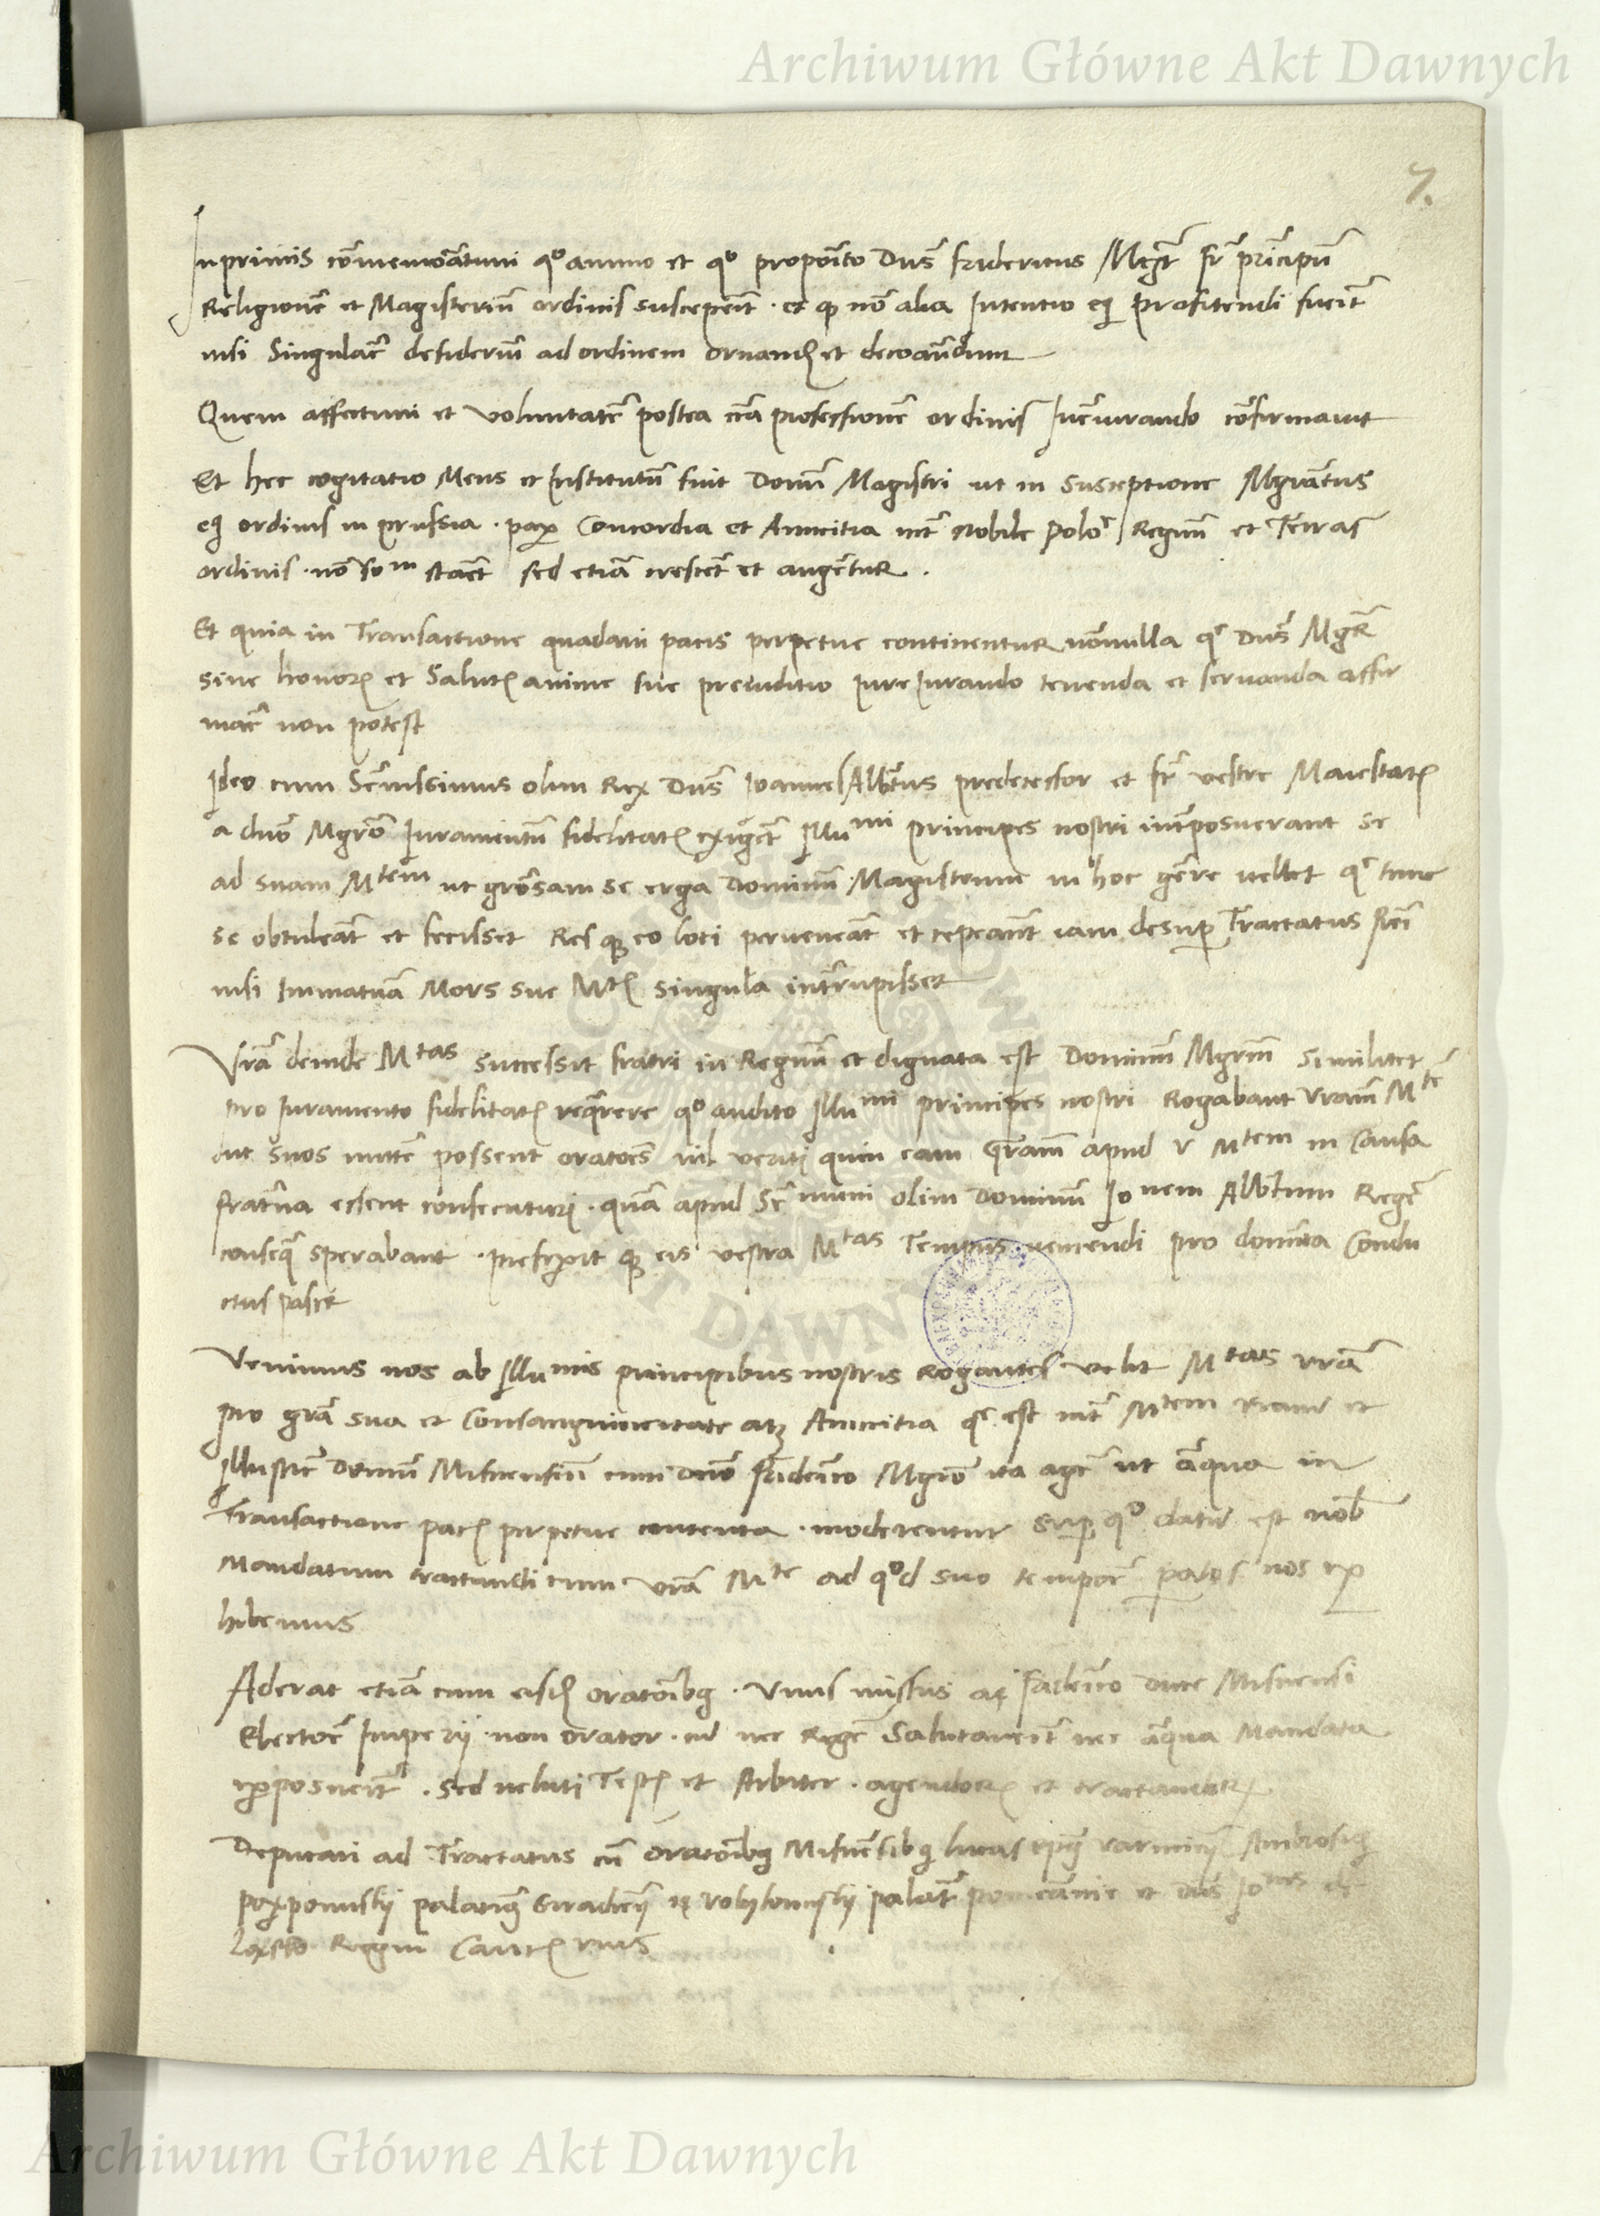 Archiwum Główne Akt Dawnych
7.
Inprimis cōmemorātum qͦ animo et qͦ propoīto Dnūs fridericus Mgr̄ fr̄ prīcipū
Religionē et Magisteriū ordinis susceperīt · et qꝫ nō alia Intentio eiꝯ profitendi fuerīt
nisi Singularē desideriū ad ordinem ornandū et decorandum
Quem affectum et voluntatē postea cīa professionē ordinis Iureiurando cōfirmavit
Et hec cogitatio Mens et Institutū fuit Domī Magistri ut in Susceptione Mgratus
eiꝯ ordinis in prussia · pax Concordia et Amicitia int̄ Nobile Polo⁊ Regnū et Terras
ordinis · nō som starēt sed etiā crescerēt et augerētur ·
Et quia in Transactione quadam pacis perpetue continentur nōnulla q̄ Dnūs Mgr̄
sine honor⁊ et Salut⁊ anime sue preiuditio IureIurando tenenda et servanda affir
marē non potest
Ideo cum Serīssimus olim Rex Dnūs Ioannes Albtūs predecessor et fr̄ vestre Maiestat⁊
a dnō Mgrō Iuramentū fidelitat⁊ exigerēt Illumi principes nostri interposuerant se
ad suam Mtem ut grosam se erga Dominū Magistrum in hoc genere vellet q̄ tunc
se obtulerāt et fecisset Res qꝫ eo loci pervenerāt et ceperant iam desup Tractatus
nisi Immatura Mors sue Mt⁊ singula interrupisset
Vrā deinde Mtas successit fratri in Regnū et dignata est Dominū Mgrm̄ similiter
pro Iuramento fidelitat⁊ requirere qͦ audito Illumi principes nostri Rogabant Vram̄ Mtē
ut suos mittere possent oratores nil veriti quin eam gratiam apud v Mtem in Causa
fraterna essent consecuturi · quā apud Sermum olim Dominū Ionem Albtum Regē
consequi sperabant · prefixit qꝫ eis vestra Mtas Tempus veniendi pro domīca Condu
ctus pasce
Venimus nos ab Illumis principibus nostris Rogantes velit Mtas vrā
pro grā sua et Consanguineitate atqꝫ Amicitia q̄ est int̄ Mtem et
Illustrē Domū Misnensiū cum Dnō Fridericō Mgrō ita agē ut aliqua in
Transactione pac⁊ perpetue contenta · moderentur Sup qͦ datū est nob̄
Mandatum tractandi cum Vrā Mte ad qͦd suo temporē patos nos ex
hibemus
Aderat etiā cum eisd⁊ oratoribꝯ · Vnus missus a Fridericō Duce Misnensi
Electorē Imperii · non orator · nec Regē Salutaverīt nec aliqua Mandata
exposuerīt · Sed veluti Test⁊ et Arbiter · agendor⁊ et tractandor⁊
Deputati ad Tractatus cū Oratoribꝯ Misnēsibꝯ lucas epꝯ varmien Ambrosiꝯ
pampowsky palatinꝯ Siradien palatī pomeranie et Dnūs Iones de
Lasko Regni Canc⁊
Archiwum Główne Akt Dawnych